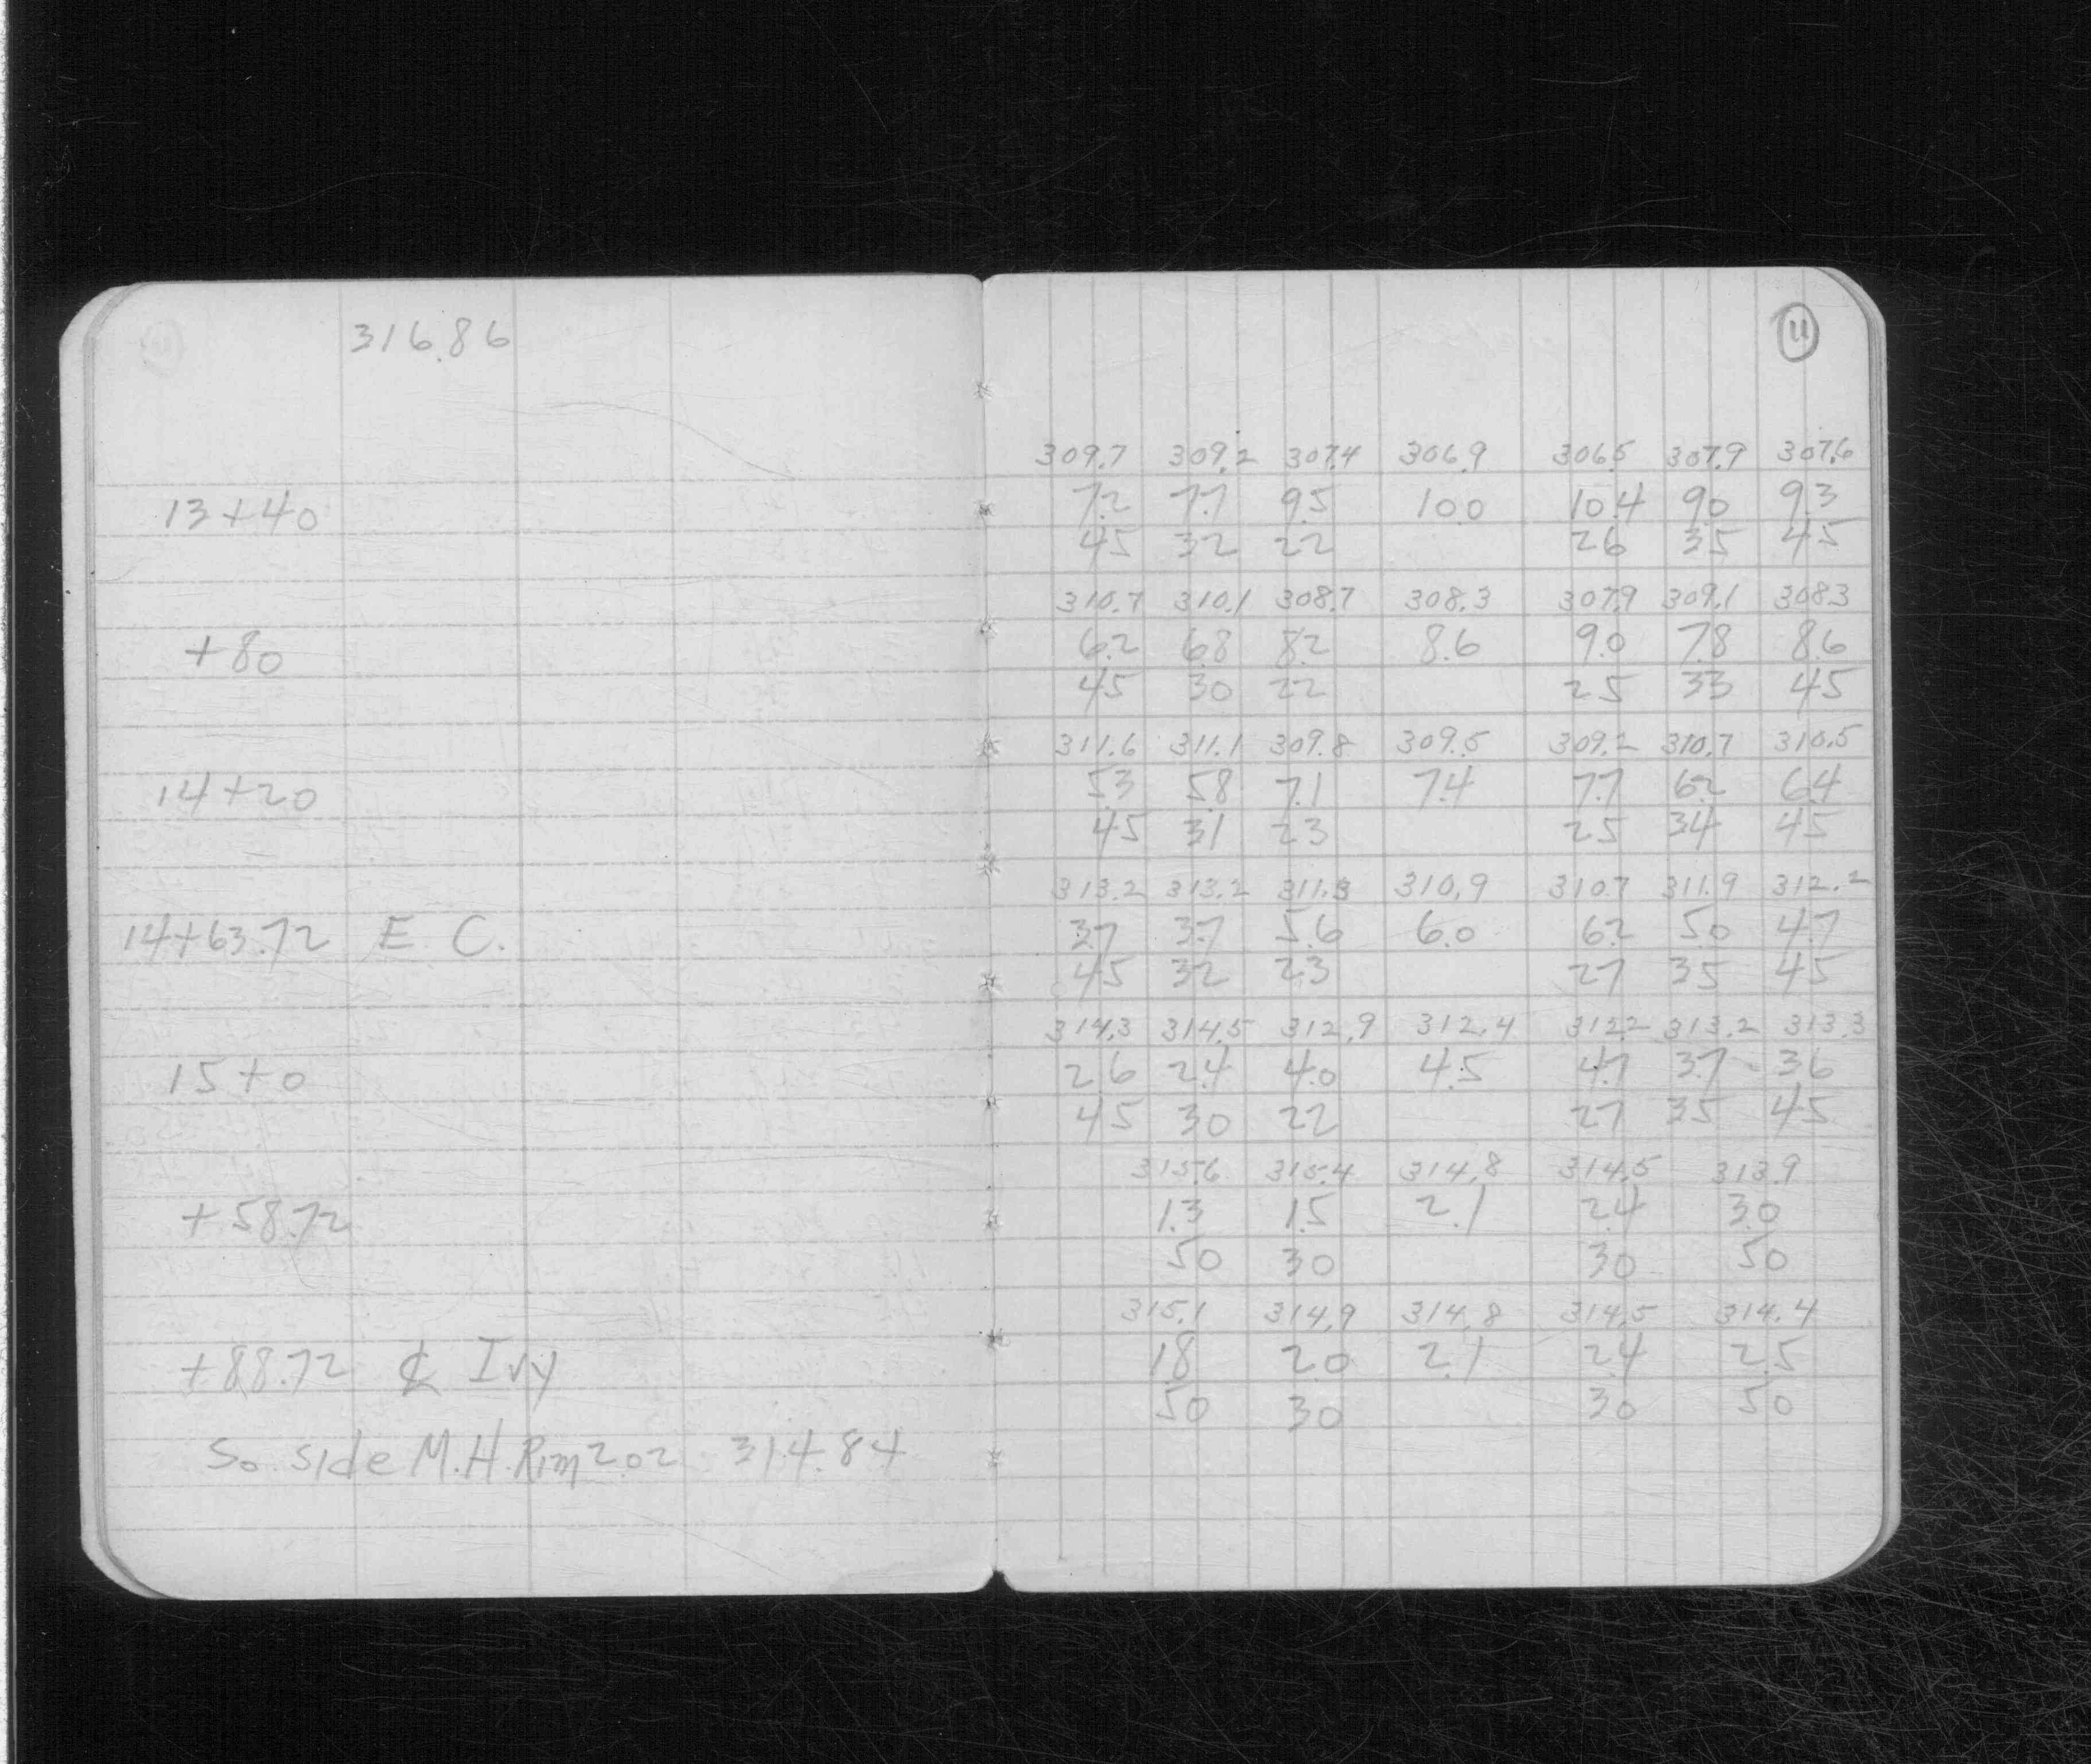 316.86
11
309.7 309.2 307.4 306.9 306.5 307.9 307.6
13+40 7.2 7.7 9.5 10.0 10.4 9.0 9.3
45 32 22 26 35 45
310.7 310.1 308.7 308.3 307.9 309.1 308.3
+80 6.2 6.8 8.2 8.6 9.0 7.8 8.6
45 30 22 25 33 45
311.6 311.1 309.8 309.5 309.2 310.7 310.5
14+20 5.3 5.8 7.1 7.4 7.7 6.2 6.4
45 31 23 25 34 45
313.2 313.2 311.3 310.9 310.7 311.9 312.2
14+63.72 E.C. 3.7 3.7 5.6 6.0 6.2 5.0 4.7
45 32 23 27 35 45
314.3 314.5 312.9 312.4 312.2 313.2 313.3
15+0 2.6 2.4 4.0 4.5 4.7 3.7 3.6
45 30 22 27 35 45
315.6 315.4 314.8 314.5 313.9
+58.72 1.3 1.5 2.1 2.4 3.0
50 30 30 50
315.1 314.9 314.8 314.5 314.4
+88.72 ₵ Ivy 1.8 2.0 2.1 2.4 2.5
50 30 30 50
So. side M.H. Rim 2.02 314.84